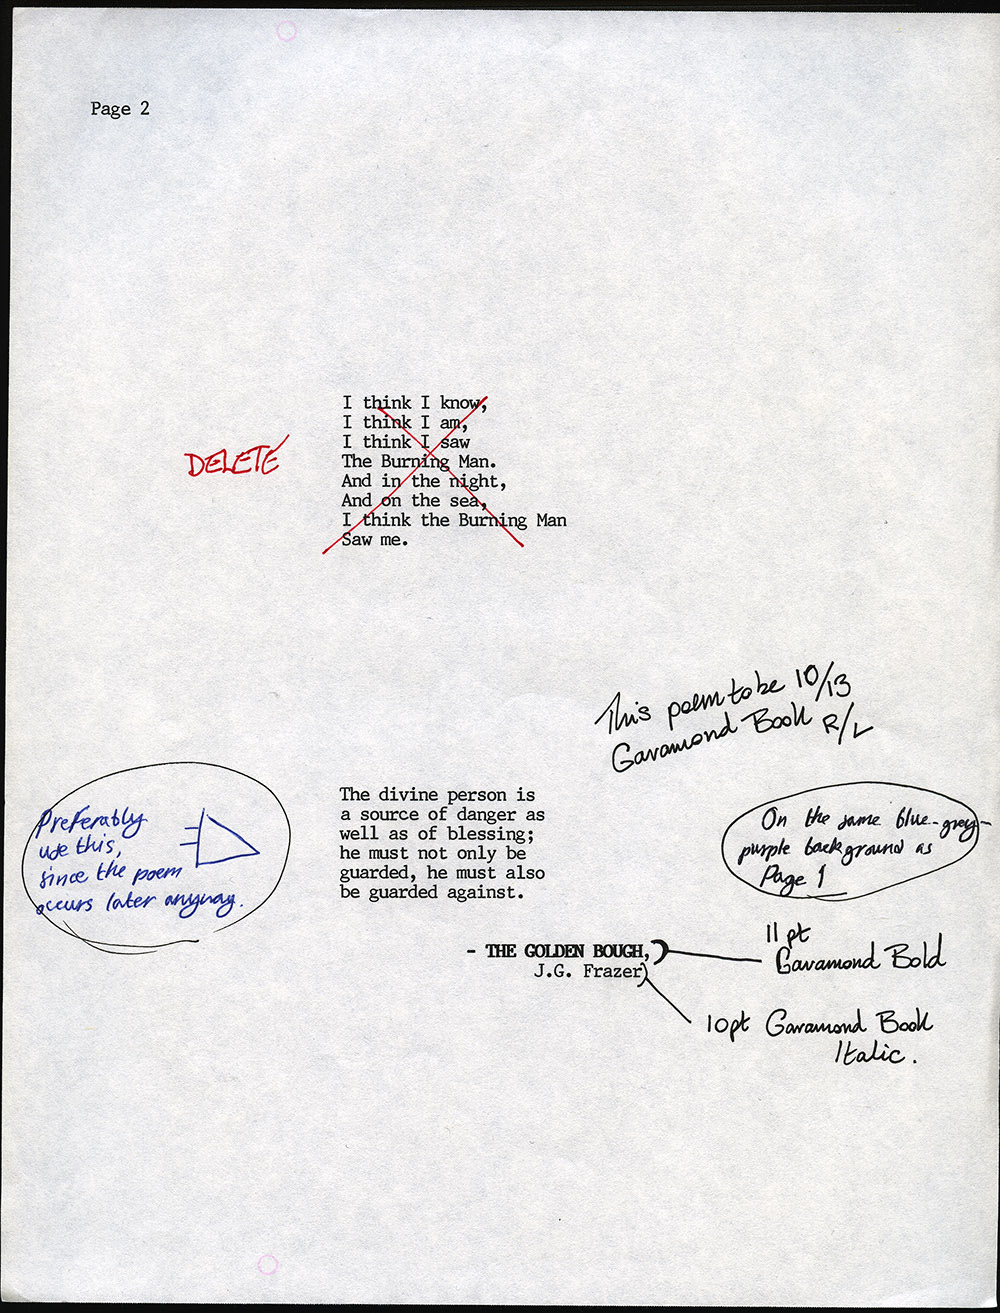 Page 2
I think I know,
I think I am,
I think I saw
The Burning Man.
And in the night,
And on the sea,
I think the Burning Man
Saw me.
DELETE
This poem to be 10/13
Garamond Book R/L
Preferably
use this,
since the poem
occurs later anyway.
The divine person is
a source of danger as
well as of blessing;
he must not only be
guarded, he must also
be guarded against.
On the same blue-grey-
purple background as
Page 1
- THE GOLDEN BOUGH,
J.G. Frazer
11 pt
Garamond Bold
10pt Garamond Book
Italic.